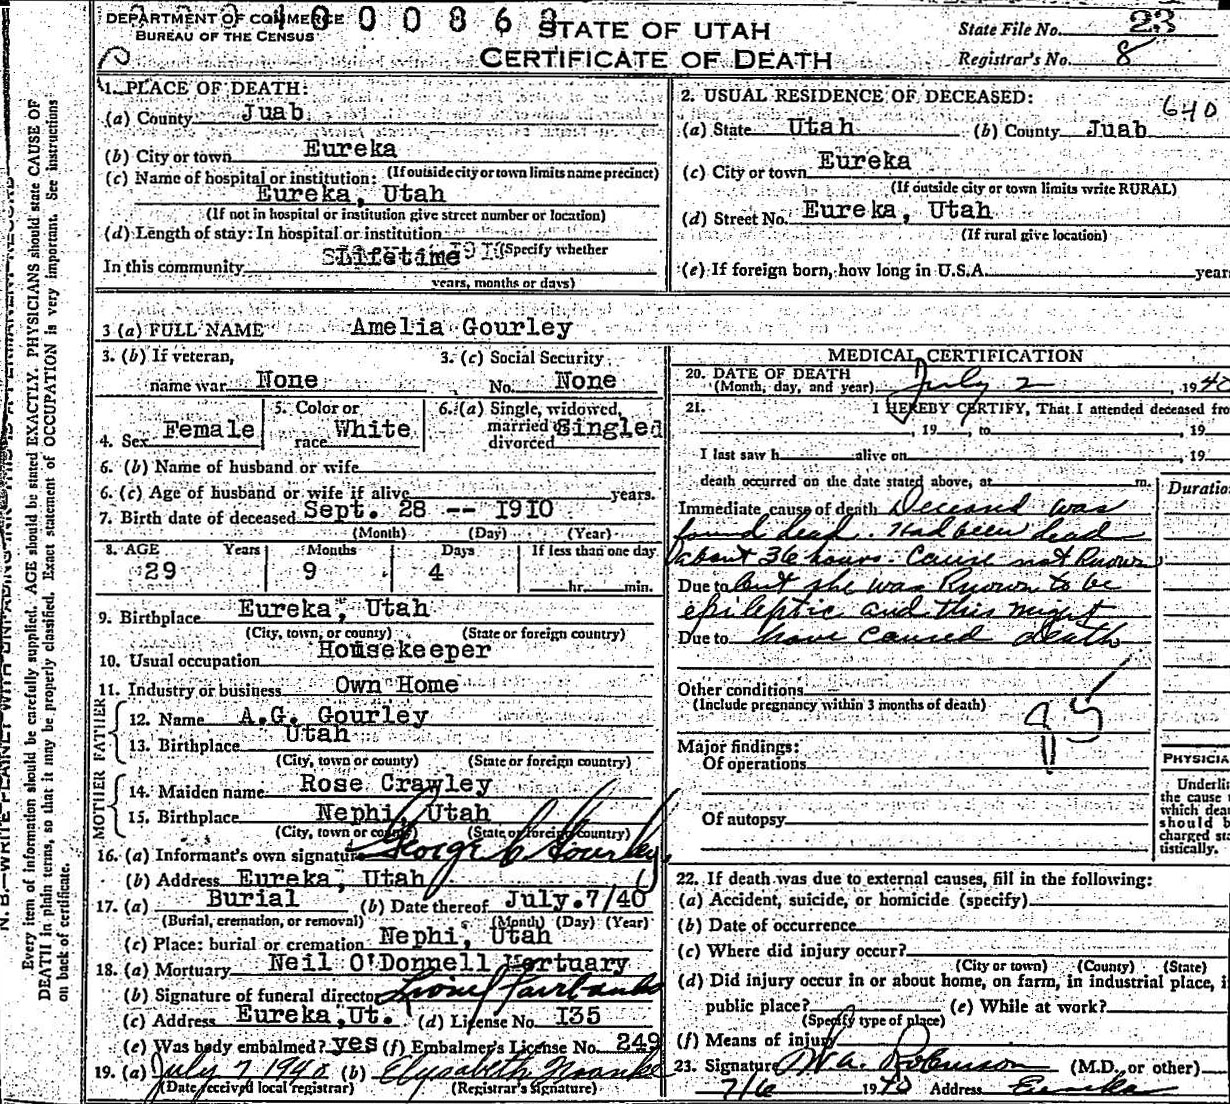 DEPARTMENT OF COMMERCE
BUREAU OF THE CENSUS
STATE OF UTAH
CERTIFICATE OF DEATH
State File No. 23
Registrar's No. 8
1. PLACE OF DEATH:
(a) County Juab
(b) City or town Eureka
(If outside city or town limits name precinct)
(c) Name of hospital or institution:
Eureka, Utah
(If not in hospital or institution give street number or location)
(d) Length of stay: In hospital or institution
(Specify whether
In this community Lifetime
years, months or days)
2. USUAL RESIDENCE OF DECEASED:
640
(a) State Utah (b) County Juab
(c) City or town Eureka
(If outside city or town limits write RURAL)
(d) Street No. Eureka, Utah
(If rural give location)
(e) If foreign born, how long in U.S.A. year
3 (a) FULL NAME Amelia Gourley
3. (b) If veteran, name war None
3. (c) Social Security No. None
4. Sex Female
5. Color or race White
6. (a) Single, widowed, married or divorced Singled
6. (b) Name of husband or wife
6. (c) Age of husband or wife if alive years.
7. Birth date of deceased Sept. 28 -- 1910
(Month) (Day) (Year)
8. AGE Years Months Days If less than one day
29 9 4 hr. min.
9. Birthplace Eureka, Utah
(City, town, or county) (State or foreign country)
10. Usual occupation Housekeeper
11. Industry or business Own Home
FATHER
12. Name A.G. Gourley
13. Birthplace Utah
(City, town or county) (State or foreign country)
MOTHER
14. Maiden name Rose Crawley
15. Birthplace Nephi, Utah
(City, town or county) (State or foreign country)
16. (a) Informant's own signature George C Gourley
(b) Address Eureka, Utah
17. (a) Burial (b) Date thereof July.7/40
(Burial, cremation, or removal) (Month) (Day) (Year)
(c) Place: burial or cremation Nephi, Utah
18. (a) Mortuary Neil O'Donnell Mortuary
(b) Signature of funeral director Lionel Fairbanks
(c) Address Eureka,Ut. (d) License No. 135
(e) Was body embalmed? yes (f) Embalmer's License No. 249
19. (a) July 7 1940 (b) Elizabeth
(Date received local registrar) (Registrar's signature)
MEDICAL CERTIFICATION
20. DATE OF DEATH
(Month, day, and year) July 2, 1940
21. I HEREBY CERTIFY, That I attended deceased fro
, 19 , to , 19
I last saw h alive on , 19
death occurred on the date stated above, at m.
Duratio
Immediate cause of death Deceased was
found dead. Had been dead
about 36 hours. Cause not Known
Due to but she was Known to be
epileptic and this might
Due to have caused death
Other conditions
(Include pregnancy within 3 months of death)
85
Major findings:
Of operations
Of autopsy
PHYSICIA
Underlin
the cause
which dea
should b
charged sta
tistically.
22. If death was due to external causes, fill in the following:
(a) Accident, suicide, or homicide (specify)
(b) Date of occurrence
(c) Where did injury occur?
(City or town) (County) (State)
(d) Did injury occur in or about home, on farm, in industrial place, i
public place? (e) While at work?
(Specify type of place)
(f) Means of injury
23. Signature Robinson (M.D. or other)
7/6 1940 Address Eureka
N. B.—WRITE PLAINLY WITH UNFADING INK THIS IS A PERMANENT RECORD
Every item of information should be carefully supplied. AGE should be stated EXACTLY. PHYSICIANS should state CAUSE OF
DEATH in plain terms, so that it may be properly classified. Exact statement of OCCUPATION is very important. See instructions
on back of certificate.